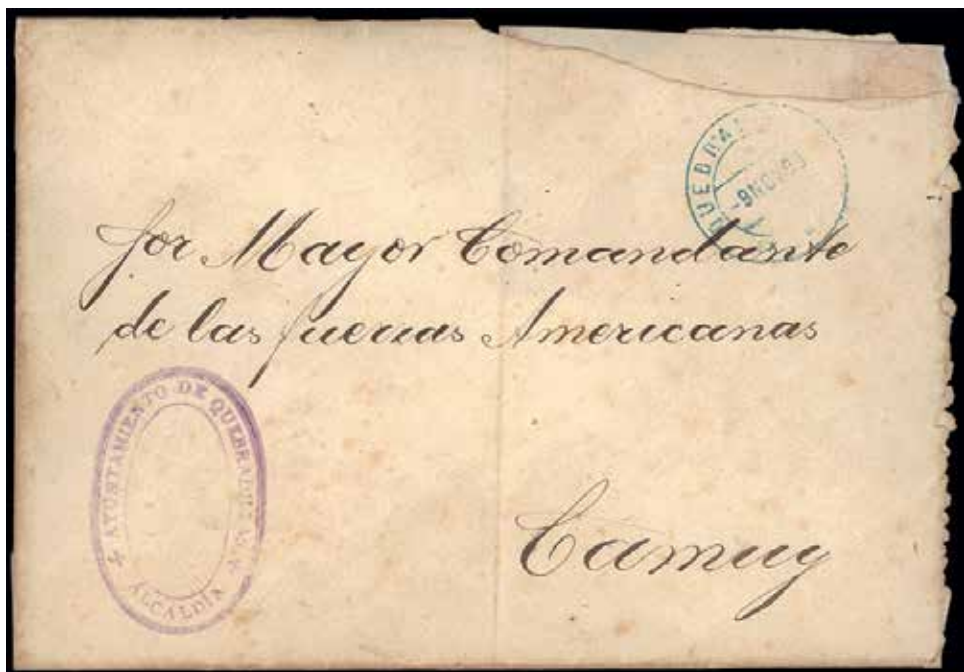 QUEBRA
9 NOV
Sor Mayor Comandante
de las fuerzas Americanas
AYUNTAMIENTO DE QUEBRADILLAS
ALCALDÍA
Camuy